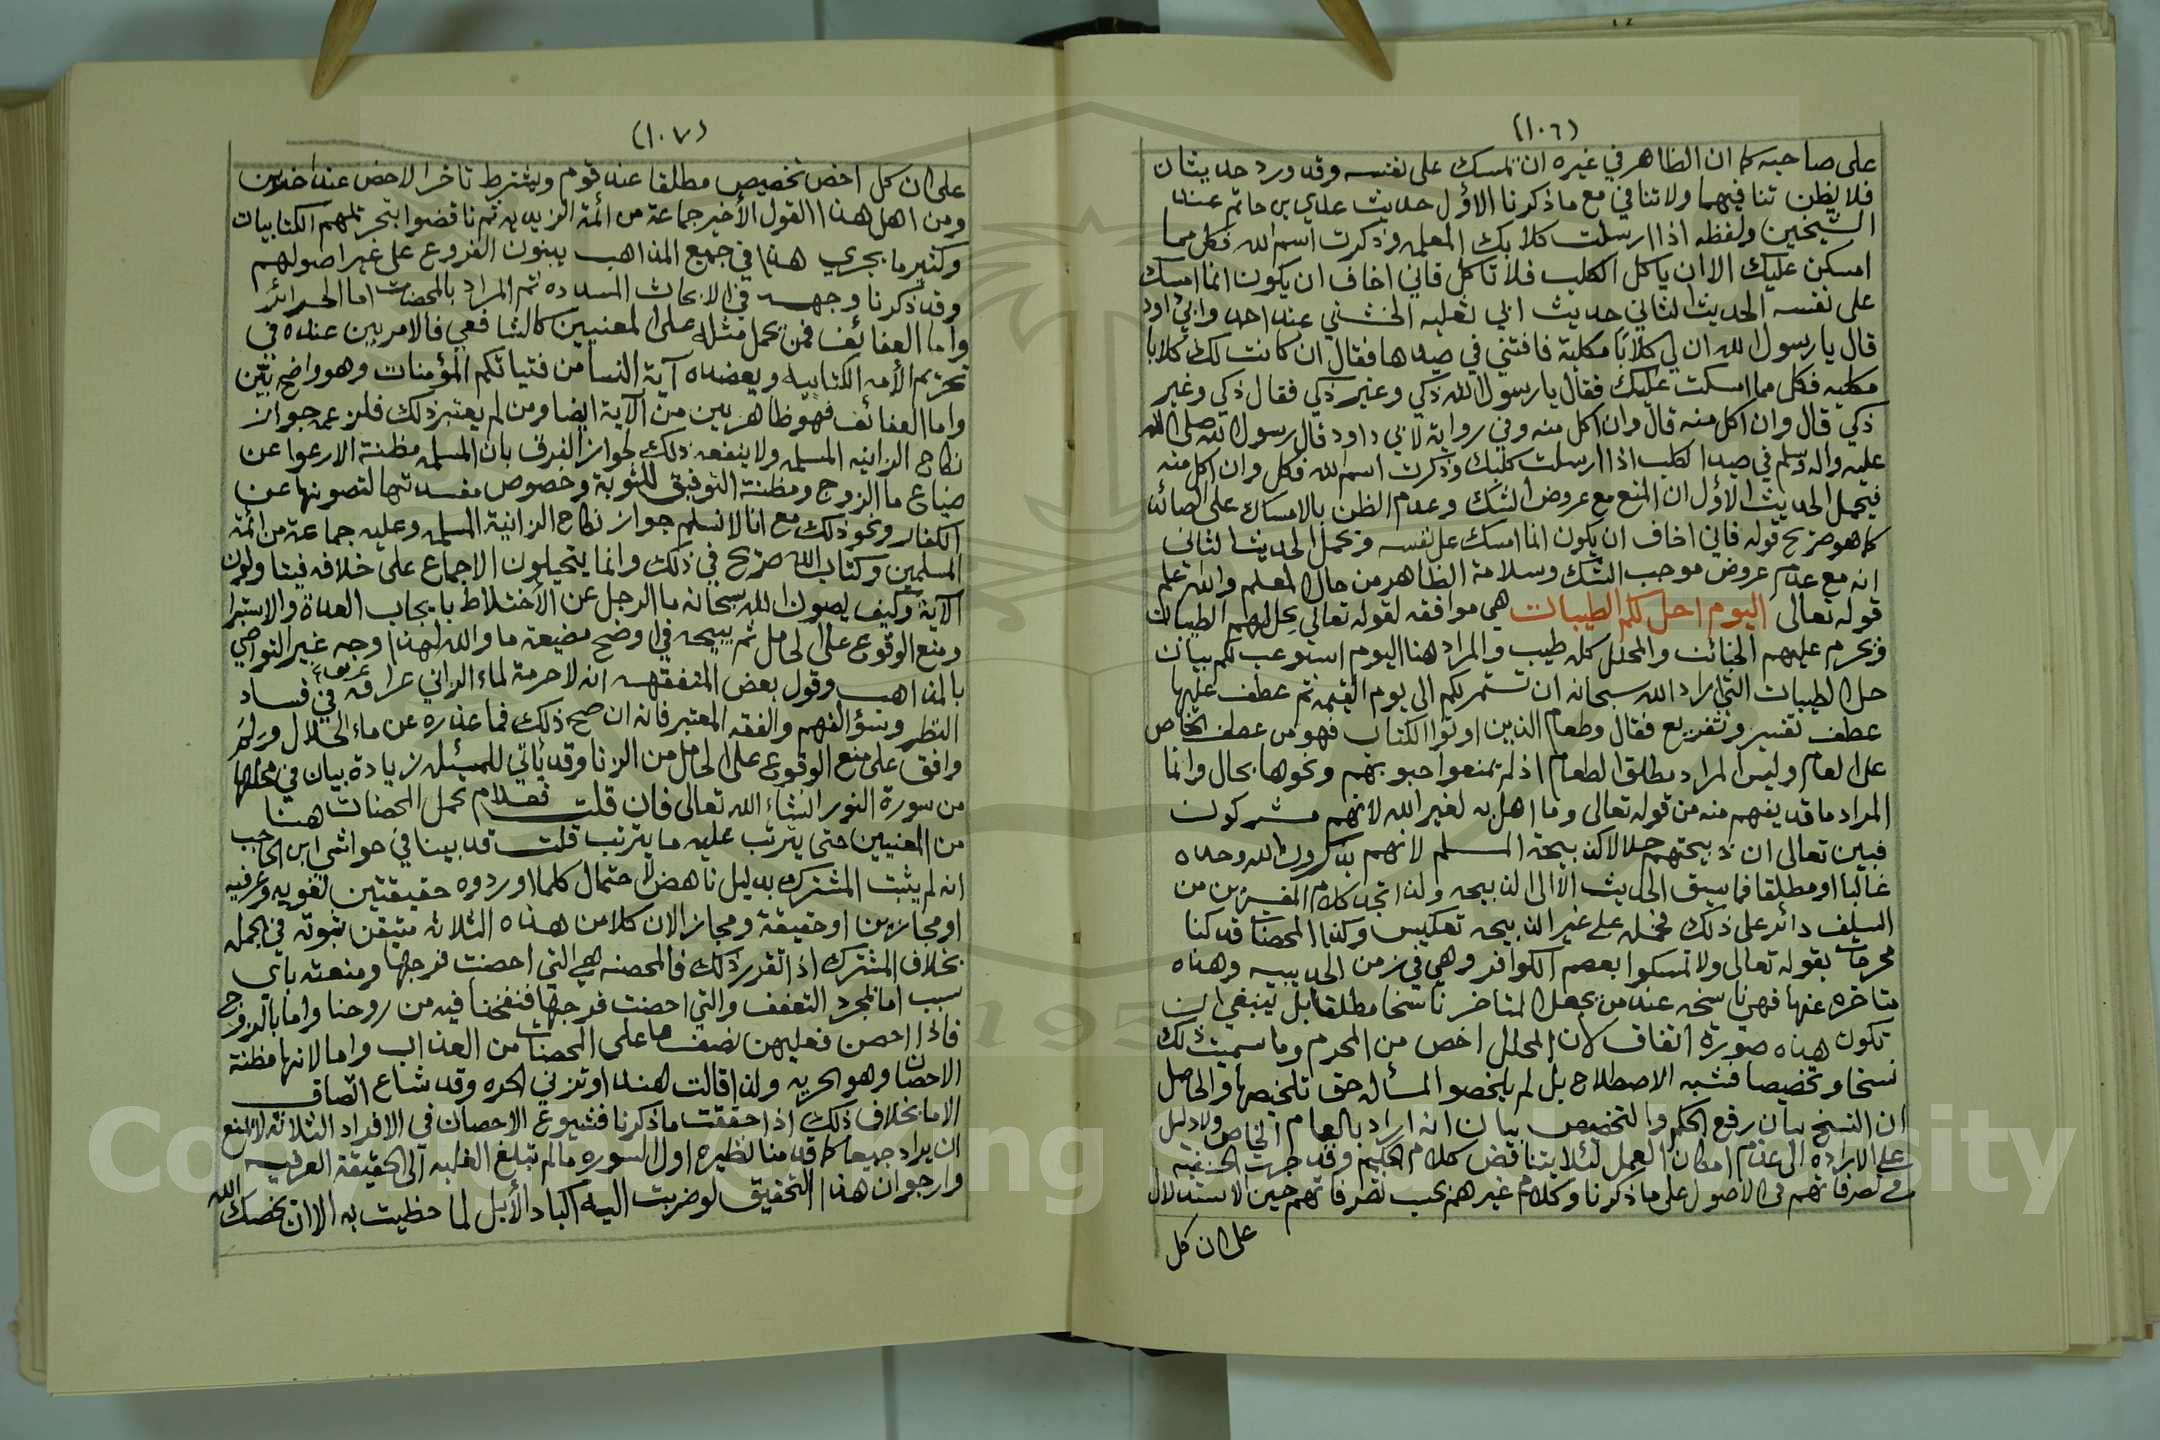 (١٠٦)
على صاحبه كما ان الظاهر في غيره ان تمسك على نفسه وقد ورد حديثان
فلا يظن تنافيهما ولا تنافي مع ما ذكرنا الاول حديث عدي بن حاتم عند
الشيخين ولفظه اذا ارسلت كلابك المعلمه وذكرت اسم الله فكل مما
امسكن عليك الا ان ياكل الكلب فلا تاكل فاني اخاف ان يكون انما امسك
على نفسه الحديث الثاني حديث ابي ثعلبه الخشني عند احمد وابي داود
قال يا رسول الله ان لي كلابا مكلبة فافتني في صيدها فقال ان كانت لك كلابا
مكلبه فكل مما امسكت عليك فقال يا رسول الله ذكي وغير ذكي فقال ذكي وغير
ذكي قال وان اكل منه قال وان اكل منه وفي رواية لابي داود قال رسول الله صلى الله
عليه واله وسلم في صيد الكلب اذا ارسلت كلبك وذكرت اسم الله فكل وان اكل منه
فيحمل الحديث الاول ان المنع مع عروض الشك وعدم الظن بالامساك على الصائد
كما هو صريح قوله فاني اخاف ان يكون انما امسك على نفسه ويحمل الحديث الثاني
انه مع عدم عروض موجب الشك وسلامة الظاهر من حال المعلم والله اعلم
قوله تعالى اليوم احل لكم الطيبات هي موافقه لقوله تعالى يحل لهم الطيبات
ويحرم عليهم الخبائث والمحلل كله طيب والمراد هنا اليوم استوعب لكم بيان
حل الطيبات التي اراد الله سبحانه ان تستمر لكم الى يوم القيمه ثم عطف عليها
عطف تفسير وتفريع فقال وطعام الذين اوتوا الكتاب فهو من عطف الخاص
على العام وليس المراد مطلق الطعام اذ لم يمنعوا حبوبهم ونحوها بحال وانما
المراد ما قد يفهم منه من قوله تعالى وما اهل به لغير الله لانهم مشركون
فبين تعالى ان ذبيحتهم حلال كذبيحة المسلم لانهم يذكرون الله وحده
غالبا او مطلقا فما سيق الحديث الا الى الذبيحه ولذا تجد كلام المفسرين من
السلف دائر على ذلك فحمله على غير الذبيحه تعكيس وكذا المحصنات قد كنا
محرمات بقوله تعالى ولا تمسكوا بعصم الكوافر وهي في زمن الحديبيه وهذه
متاخره عنها فهي ناسخه عند من يجعل المتاخر ناسخا مطلقا بل ينبغي ان
تكون هذه صورة اتفاق لان المحلل اخص من المحرم وما سميت ذلك
نسخا وتخصيصا فشبه الاصطلاح بل لم يلخصو المسأله حق تلخيصها والحاصل
ان النسخ بيان رفع الحكم والتخصيص بيان انه اراد بالعام الخاص ولا دليل
على الارادة الى عدم امكان العمل لئلا يتناقض كلام الحكيم وقد جرت الحنفيه
في تصرفاتهم في الاصول على ما ذكرنا وكلام غيرهم بحسب تصرفاتهم حين الاستدلال
على ان كل
(١٠٧)
على ان كل اخص تخصيص مطلقا عند قوم ويشترط تاخر الاخص عند اخرين
ومن اهل هذا القول الأخير جماعة من ائمة الزيديه ثم ناقضوا بتحريمهم الكتابيات
وكثير ما يجري هذا في جميع المذاهب يبنون الفروع على غير اصولهم
وقد ذكرنا وجهه في الابحاث المسدده ثم المراد بالمحصنات اما الحرائر
واما العفائف فمن يحمل مثله على المعنيين كالشافعي فالامر بين عنده في
تحريم الأمه الكتابيه ويعضده آية النسا من فتياتكم المؤمنات وهو واضح بين
واما العفائف فهو ظاهر بين من الآية ايضا ومن لم يعتبر ذلك فلزعمه جواز
نكاح الزانيه المسلمه ولا ينفعه ذلك لجواز الفرق بان المسلمه مظنة الارعوا عن
ضياع ما الزوج ومظنة التوفيق للتوبة وخصوص مفسدتها لتصونها عن
الكفار ونحو ذلك مع انا لا نسلم جواز نكاح الزانية المسلمه وعليه جماعة من ائمة
المسلمين وكتاب الله صريح في ذلك وانما يتحيلون الاجماع على خلافه فيتاولون
الآية وكيف يصون الله سبحانه ما الرجل عن الاختلاط بايجاب العدة والاستبرا
ومنع الوقوع على الحامل ثم يبيحه في اوضح مضيعة ما والله لهذا وجه غير التواصي
بالمذاهب وقول بعض المتفقهه انه لا حرمة لماء الزاني عراقه عريقة في فساد
النظر وسؤ الفهم والفقه المعتبر فانه ان صح ذلك فما عذره عن ماء الحلال ولم
وافق على منع الوقوع على الحامل من الزنا وقد يأتي للمسئله زيادة بيان في محلها
من سورة النور انشاء الله تعالى فان قلت فعلام يحمل المحصنات هنا
من المعنيين حتى يترتب عليه ما يترتب قلت قد بينا في حواشي ابن الحاجب
انه لم يثبت المشترك بدليل ناهض لاحتمال كلما اوردوه حقيقتين لغويه وعرفيه
او مجازين او حقيقة ومجاز الان كلا من هذه الثلاثه متيقن ثبوته في الجمله
بخلاف المشترك اذا تقرر ذلك فالمحصنه هي التي احصنت فرجها ومنعته باي
سبب اما لمجرد التعفف والتي احصنت فرجها فنفخنا فيه من روحنا واما بالزوج
فاذا احصن فعليهن نصف ما على المحصنات من العذاب واما لانها مظنة
الاحصان وهو الحريه ولذا قالت هند او تزني الحره وقد شاع اتصاف
الاما بخلاف ذلك اذا حققت ما ذكرنا فشيوع الاحصان في الافراد الثلاثه لا يمنع
ان يراد جميعا كما قدمنا نظيره اول السوره ما لم تبلغ الغلبه الى الحقيقة العرفيه
وارجوا ان هذا التحقيق لو ضربت اليه اكباد الأبل لما حظيت به الا ان يخصك الله